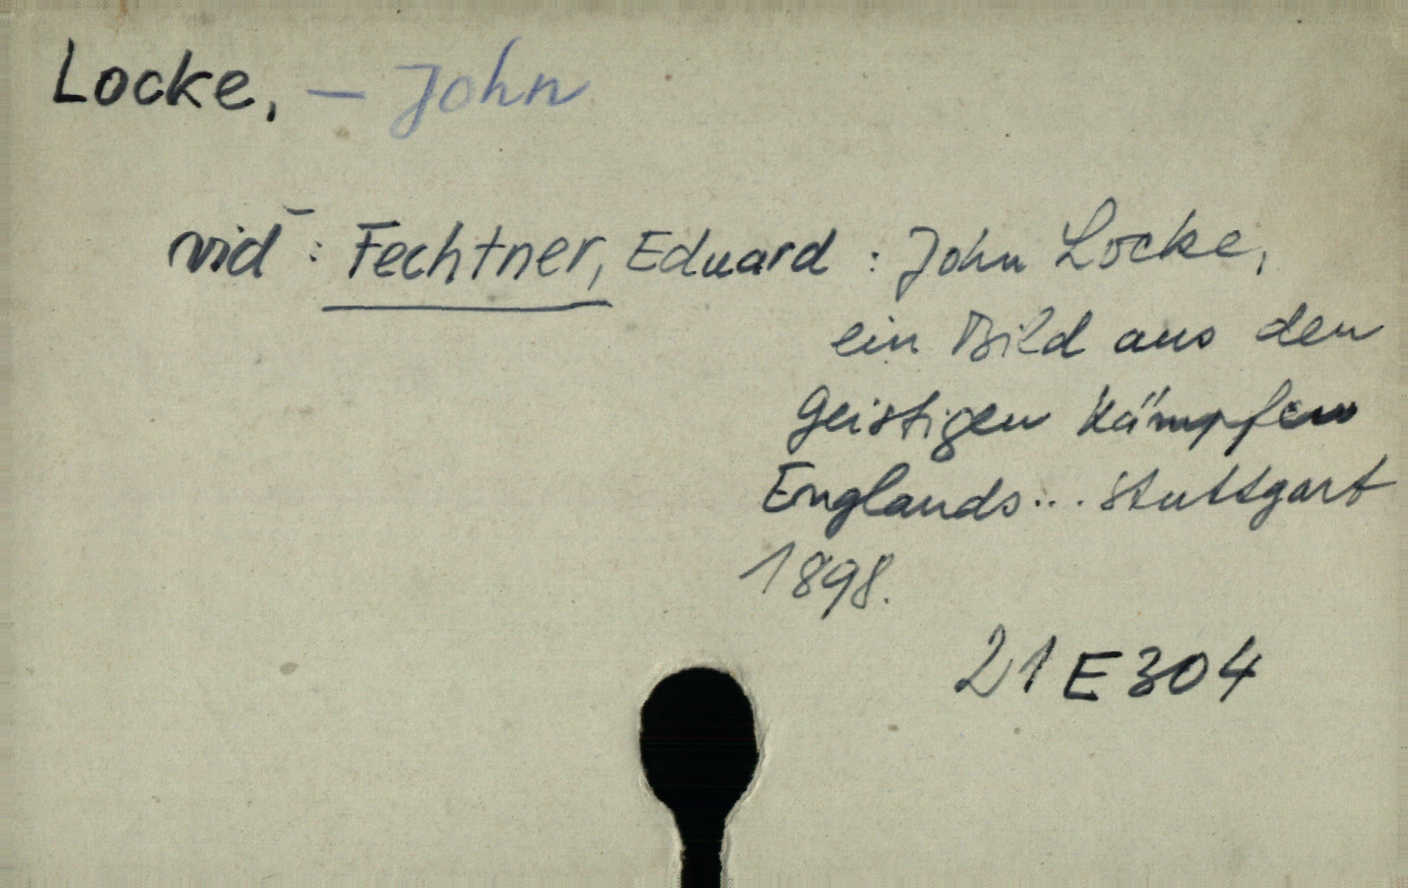 Locke, – John
vid : Fechtner, Eduard : John Locke,
ein Bild aus den
geistigen Kämpfen
Englands... Stuttgart
1898.
21 E 304